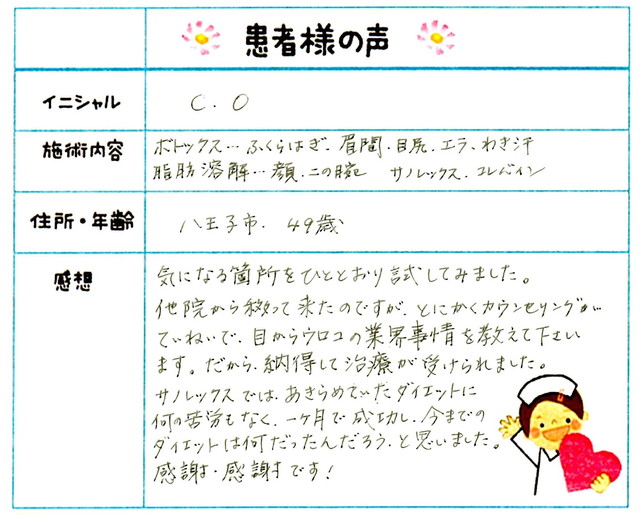 患者様の声
イニシャル C.O
施術内容 ボトックス…ふくらはぎ、眉間・目尻、エラ、わき汗
脂肪溶解…顔・二の腕 サノレックス、コレバイン
住所・年齢 八王子市. 49歳
感想 気になる箇所をひととおり試してみました。
他院から移って来たのですが、とにかくカウンセリングが
ていねいで、目からウロコの業界事情を教えて下さい
ます。だから、納得して治療が受けられました。
サノレックスでは、あきらめていたダイエットに
何の苦労もなく、一ヶ月で成功し、今までの
ダイエットは何だったんだろう、と思いました。
感謝・感謝です!